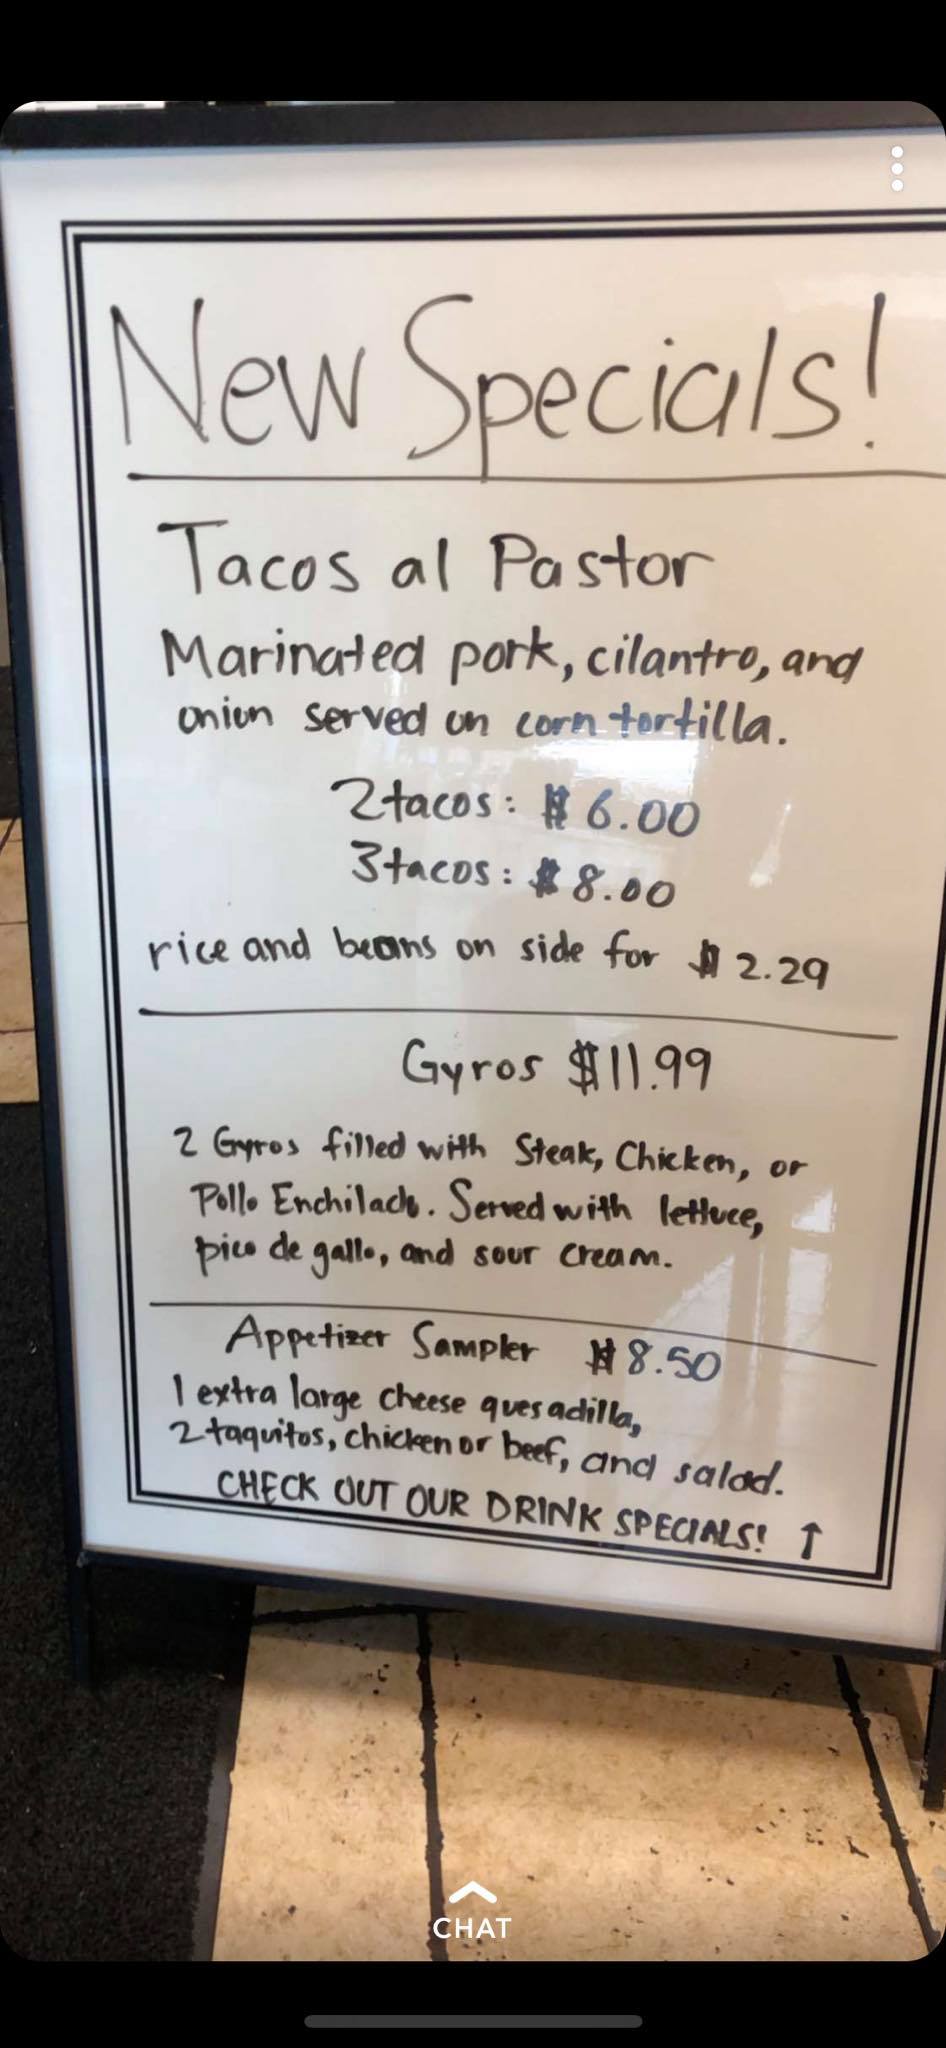 New Specials!
Tacos al Pastor
Marinated pork, cilantro, and
onion served on corn tortilla.
2 tacos: $6.00
3 tacos: $8.00
rice and beans on side for $2.29
Gyros $11.99
2 Gyros filled with Steak, Chicken, or
Pollo Enchilado. Served with lettuce,
pico de gallo, and sour cream.
Appetizer Sampler $8.50
1 extra large cheese quesadilla,
2 taquitos, chicken or beef, and salad.
CHECK OUT OUR DRINK SPECIALS! ↑
CHAT